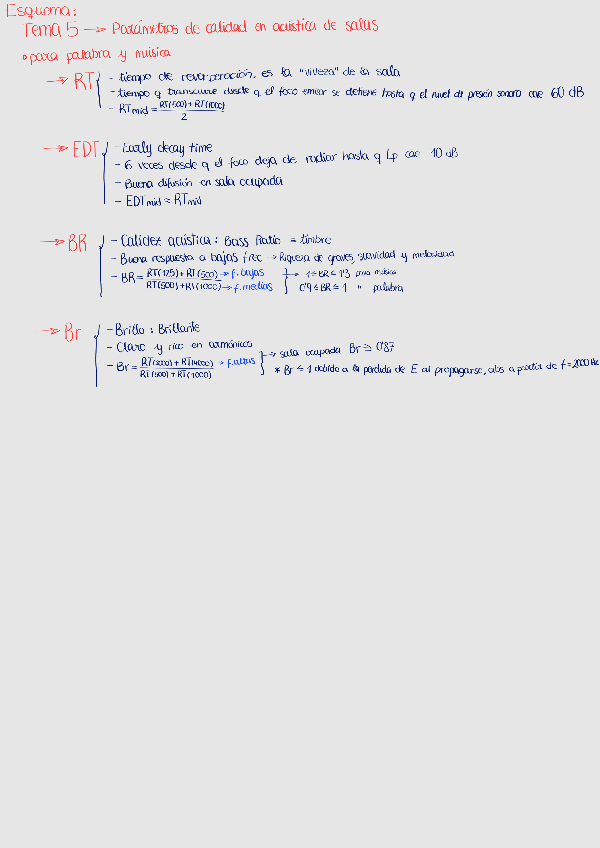 Esquema:
Tema 5 → Parámetros de calidad en acústica de salas
• para palabra y música
→ RT { - tiempo de reverberación, es la "viveza" de la sala
- tiempo q transcurre desde q el foco emisor se detiene hasta q el nivel de presión sonora cae 60 dB
- RTmid = RT(500) + RT(1000) / 2
→ EDT { - Early decay time
- 6 veces desde q el foco deja de radiar hasta q Lp cae 10 dB
- Buena difusión en sala ocupada
- EDTmid ≈ RTmid
→ BR { - Calidez acústica : Bass Ratio = timbre
- Buena respuesta a bajas frec → Riqueza de graves, suavidad y melosidad
- BR = RT(125) + RT(500) → f. bajas / RT(500) + RT(1000) → f. medias } → 1 ≤ BR ≤ 1'3 para música
0'9 ≤ BR ≤ 1 " palabra
→ Br { - Brillo : Brillante
- Claro y rico en armónicos
- Br = RT(2000) + RT(4000) → f. altas / RT(500) + RT(1000) } → sala ocupada Br ≥ 0'87
* Br ≤ 1 debido a la pérdida de E al propagarse, abs a partir de f = 2000 Hz